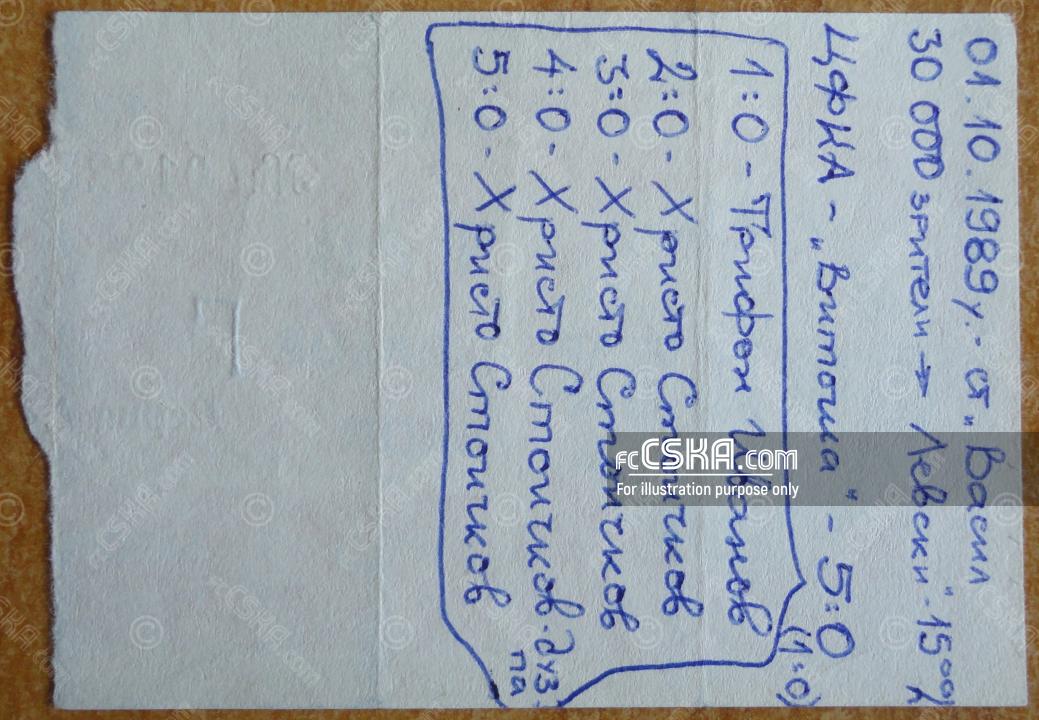 01.10.1989г. - ст. „Васил
30 000 зрители → Левски" - 15⁰⁰ч
ЦФКА - „Витоша" - 5:0
(1:0)
1:0 - Трифон Иванов
2:0 - Христо Стоичков
3:0 - Христо Стоичков
4:0 - Христо Стоичков - дуз
па
5:0 - Христо Стоичков
fcCSKA.com
For illustration purpose only